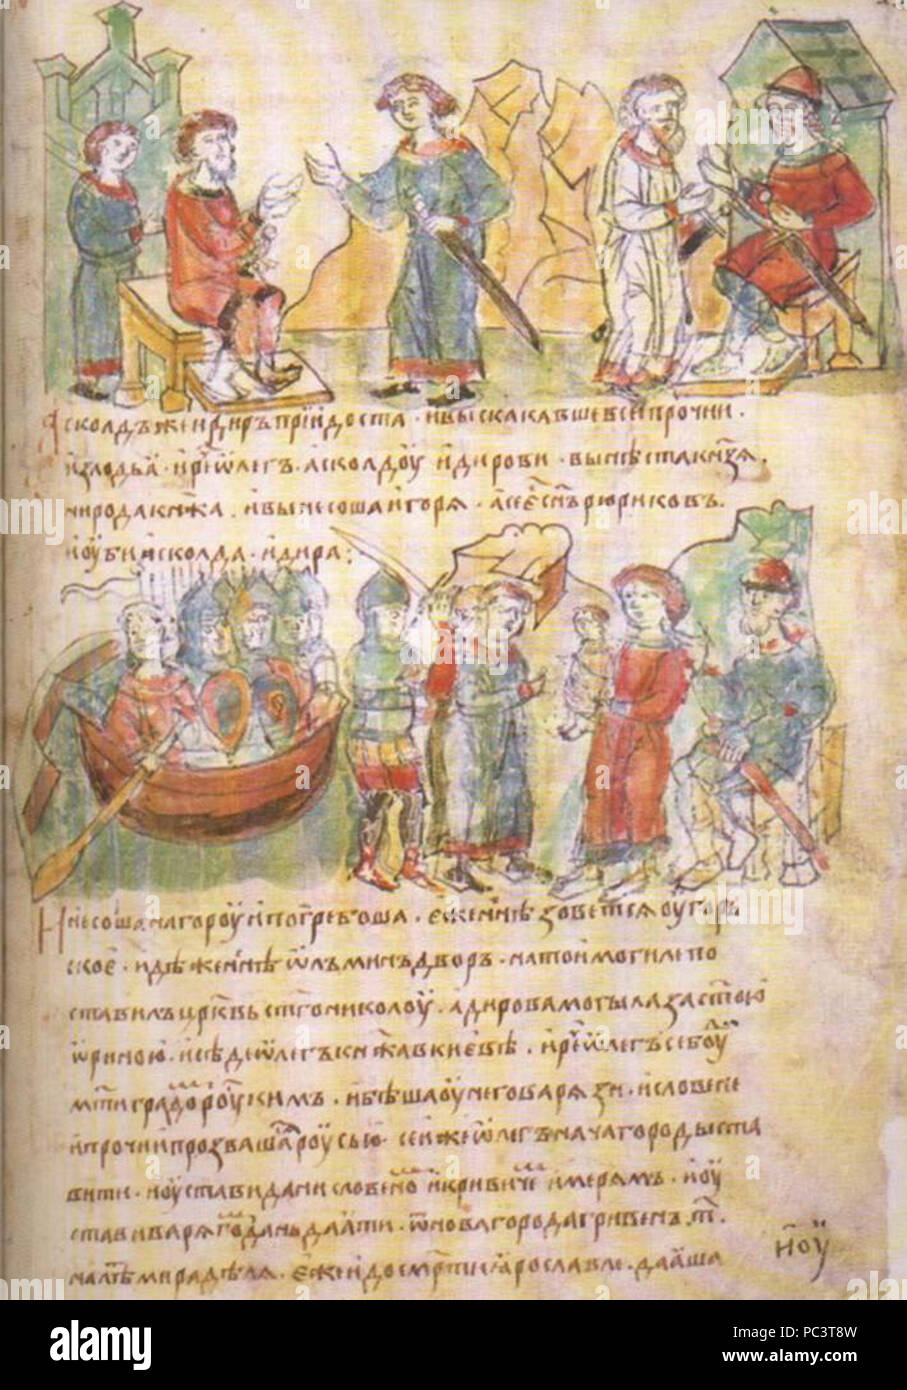 Асколдъ же и Диръ прїидоста · и выскакавше вси прочии ·
из лодьꙗ · и рⷱе ѡлегъ · асколдоу и дирови · вы нѣста кнѧзѧ ·
ни рода кнѧжа · и вынесоша игорѧ · а се єⷭ сн҃ъ рюриковъ ·
и оуби асколда · и дира :
И несоша на гороу и погребоша · еже нн҃ѣ зоветсѧ оугорь
ское · идѣже нн҃ѣ ѡлъминъ дворъ · на тои могиле по
ставилъ цр҃квь ст҃го николоу · а дирова могыла за ст҃ою
ѡриною · и сѣде ѡлегъ кнѧжа в киевѣ · и рⷱе ѡлегъ се боуⷣ
мт҃и градоⷨ роуⷭкимъ · и бѣша оу него варѧзи · и словене
и прочии прозвашасѧ роусью · сеи же ѡлегъ нача городы ста
вити · и оустави дани словеноⷨ и кривичеⷨ и мерѧмъ · и оу
стави варѧгоⷨ дань даѧти · ѿ новагорода гривенъ т҃ ·
на лѣⷮ мира дѣлѧ · еже и до смр҃ти ꙗрославле · даꙗша
и оу
alamy stock photo
alamy
Image ID: PC3T8W
www.alamy.com